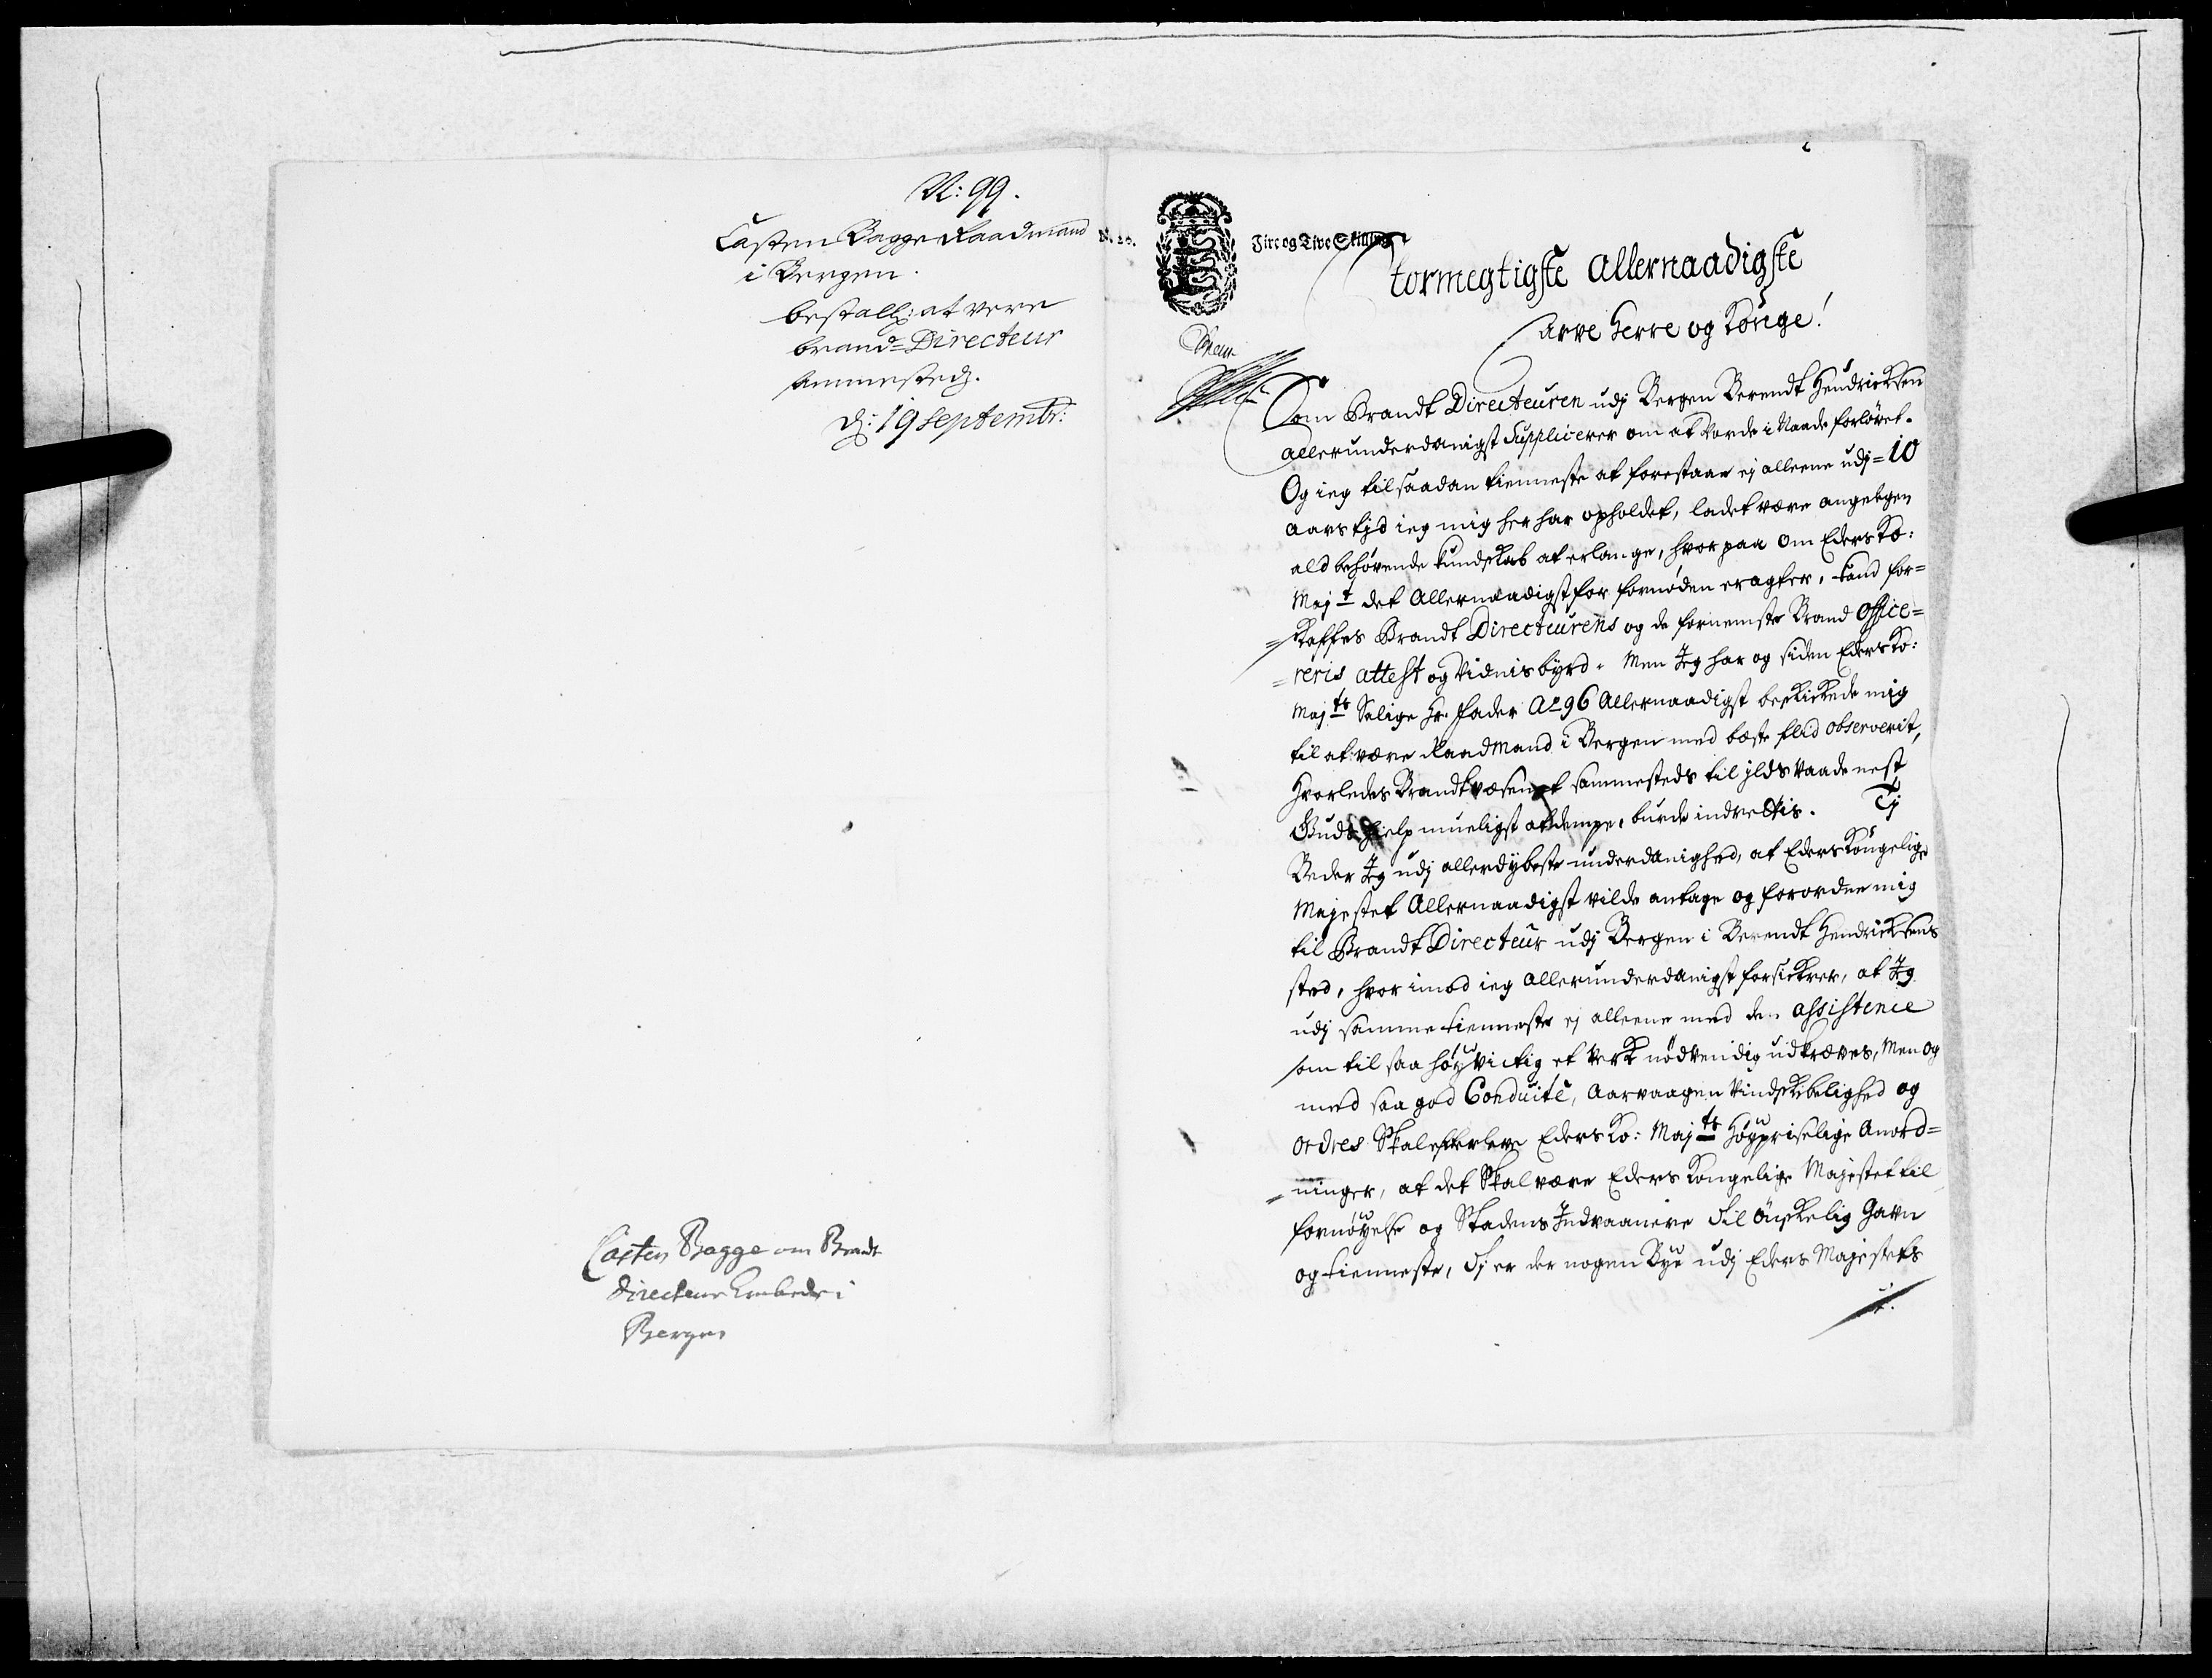 N: 99.
Casten Bagge Raadmand
i Bergen.
bestall: at vere
brand=Directeur
sammested.
d: 19 Septembr:
Casten Bagge om Brandt
Directeur Embede i
Bergen
N. 20.
Fire og Tive Skilling
Stormegtigste Allernaadigste
Arve Herre og Konge!
Som Brandt Directeuren udj Bergen Berendt Hendricksen
allerunderdanigst Supplicerer om at vorde i Naade forløvet.
Og ieg til saadan tienneste at forestaae ej alleene udj=10
aars tjd ieg mig her har opholdet, ladet være angelegen
ald behøvende kundskab at erlange, hvor paa om Eders Ko:
Majt det Allernaadigst for fornøden eragter, kand for=
=skaffes Brandt Directeurens og de fornemste Brand Office=
=reris attest og Vidnisbyrd. Men Jeg har og siden Eders Ko:
Majts Salige Hr. Fader Ao 96 Allernaadigst beskickede mig
til at være Raadmand i Bergen med bæste flid observerit,
Hvorledes Brandtvæsenet sammesteds til ilds Vaade nest
Guds hielp mueligst at dempe, burde indrettis. Tj
Beder Jeg udj allerdybeste underdanighed, at Eders Kongelige
Majestet Allernaadigst vilde antage og forordne mig
til Brandt Directeur udj Bergen i Berendt Hendricksens
sted, hvor imod ieg allerunderdanigst forsickrer, at Jeg
udj samme tienneste ej alleene med den assistence
som til saa høy victig et verk nødvendig udkræves, Men og
med saa god Conduite, Aarvaagen Vindskibelighed og
ordres Skal efterleve Eders Ko: Majts Høypriselige Anord=
=ninger, at det Skal være Eders Kongelige Majestet til
fornøyelse og Stadens Indvaanere til ønskelig Gavn
og tienneste, Tj er der nogen Bye udj Eders Majestets